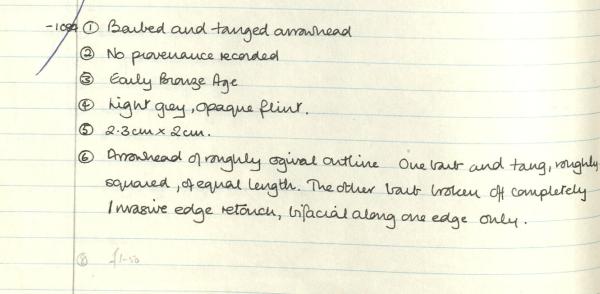 ① Barbed and tanged arrowhead
② No provenance recorded
③ Early Bronze Age
④ Light grey, opaque flint.
⑤ 2.3cm x 2cm.
⑥ Arrowhead of roughly ogival outline One barb and tang, roughly
squared, of equal length. The other barb broken off completely
Invasive edge retouch, bifacial along one edge only.
⑧ £1-50